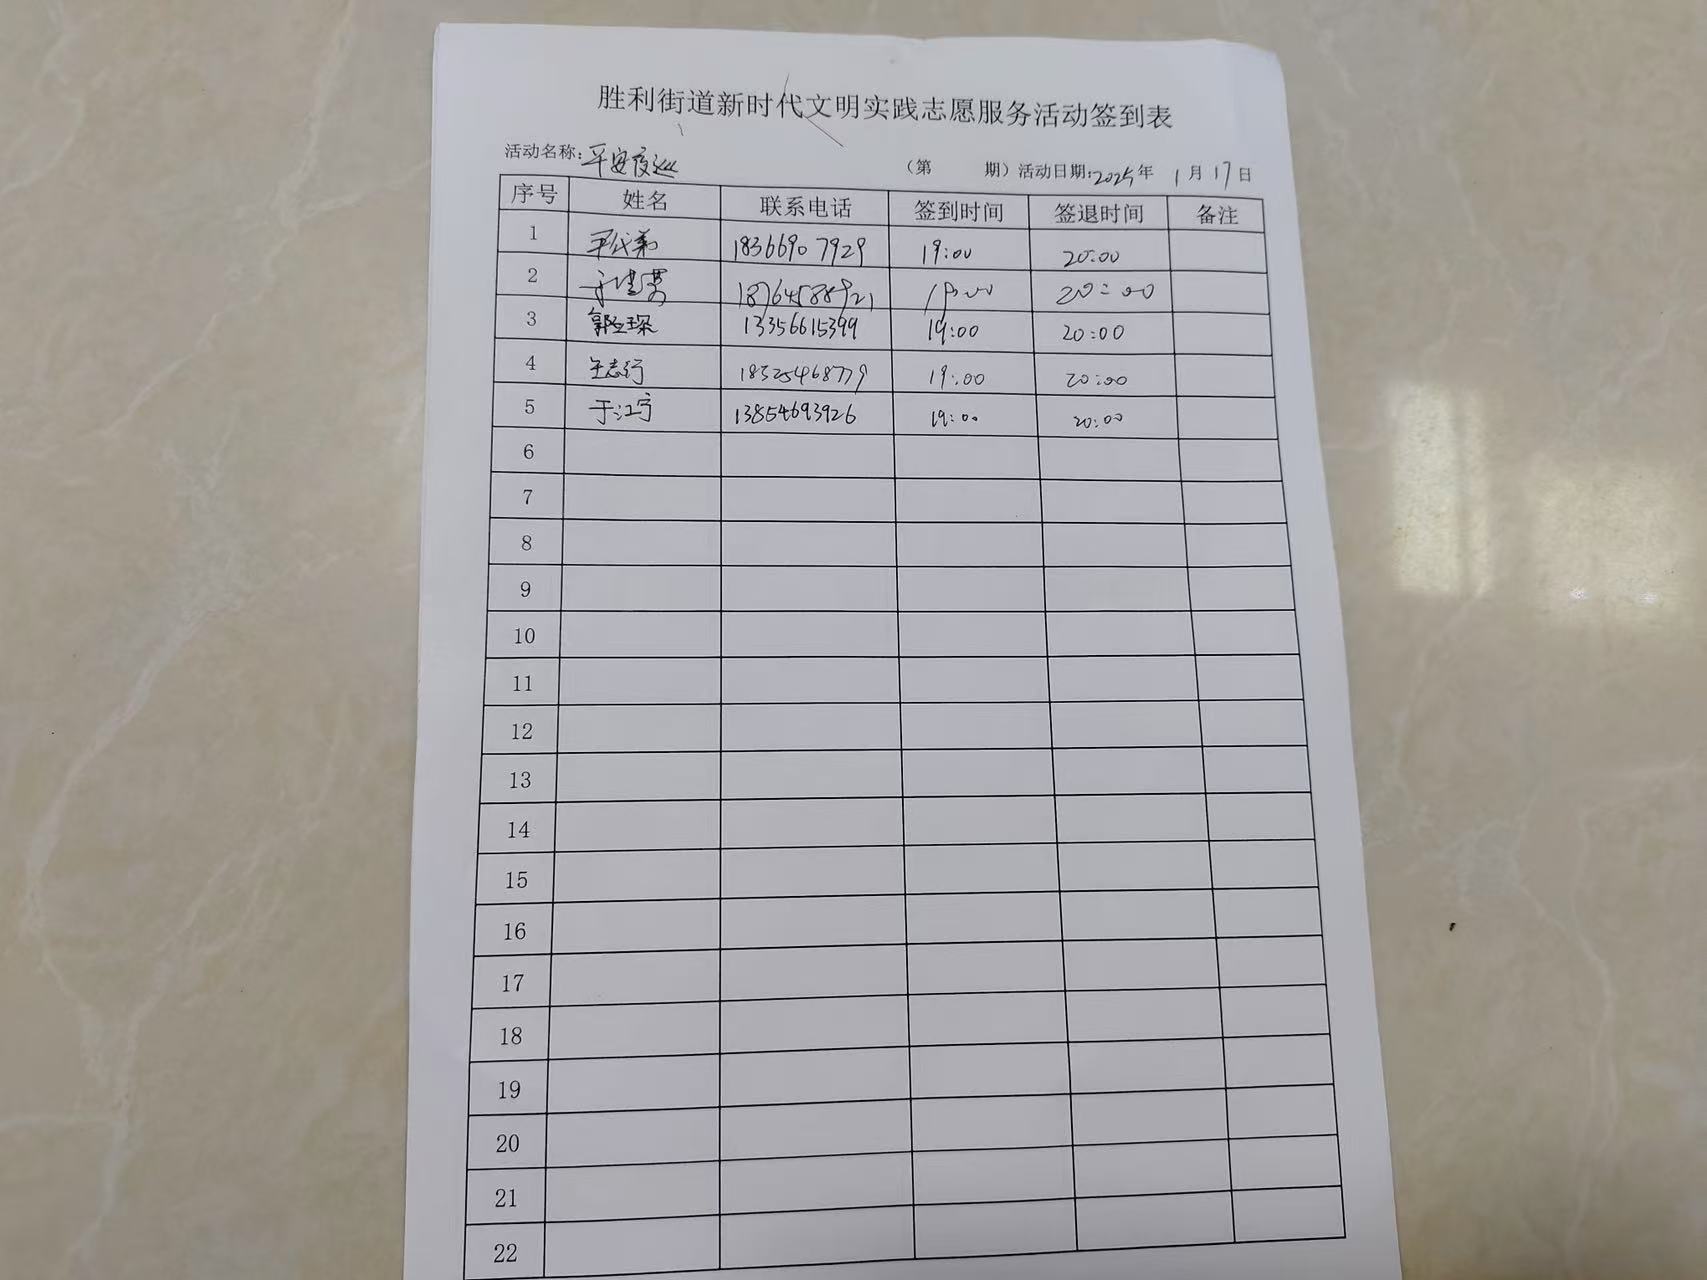 胜利街道新时代文明实践志愿服务活动签到表
活动名称:平安夜巡 （第 期）活动日期:2025年 1月17日
序号 姓名 联系电话 签到时间 签退时间 备注
1 18366907929 19:00 20:00
2 18764588921 19:00 20:00
3 13356615399 19:00 20:00
4 王志行 18325468779 19:00 20:00
5 于江宁 13854693926 19:00 20:00
6
7
8
9
10
11
12
13
14
15
16
17
18
19
20
21
22